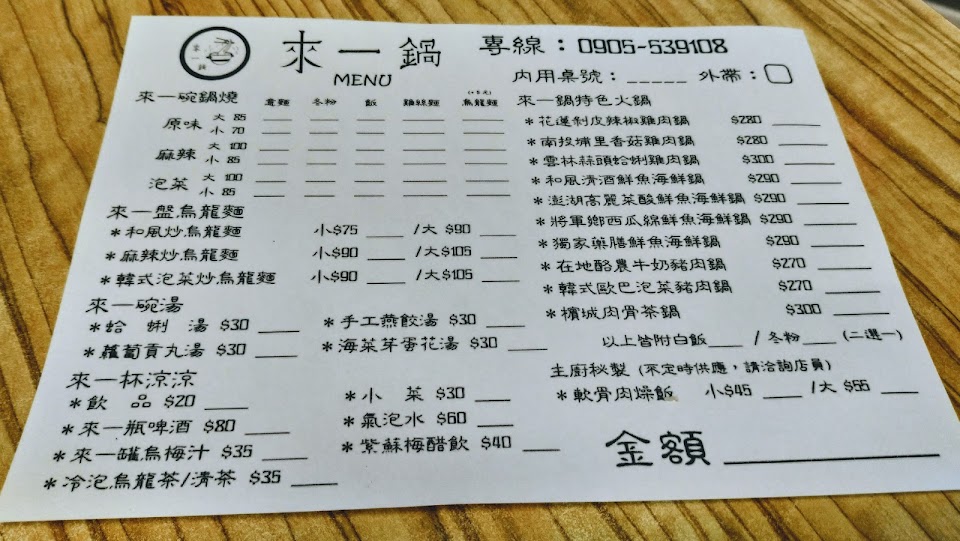 來一鍋
來一鍋 專線：0905-539108
MENU
內用桌號：_____ 外帶：
來一碗鍋燒 意麵 冬粉 飯 雞絲麵 烏龍麵
(+5元)
原味 大 85
小 70
麻辣 大 100
小 85
泡菜 大 100
小 85
來一盤烏龍麵
*和風炒烏龍麵 小$75 ____ /大 $90 ____
*麻辣炒烏龍麵 小$90 ____ /大$105 ____
*韓式泡菜炒烏龍麵 小$90 ____ /大$105 ____
來一碗湯
*蛤 蜊 湯 $30 ____ *手工燕餃湯 $30 ____
*蘿蔔貢丸湯 $30 ____ *海菜芽蛋花湯 $30 ____
來一杯涼涼
*飲 品 $20 ____ *小 菜 $30 ____
*來一瓶啤酒 $80 ____ *氣泡水 $60 ____
*來一罐烏梅汁 $35 ____ *紫蘇梅醋飲 $40 ____
*冷泡烏龍茶/清茶 $35 ____
來一鍋特色火鍋
*花蓮剝皮辣椒雞肉鍋 $280 ____
*南投埔里香菇雞肉鍋 $280 ____
*雲林蒜頭蛤蜊雞肉鍋 $300 ____
*和風清酒鮮魚海鮮鍋 $290 ____
*澎湖高麗菜酸鮮魚海鮮鍋 $290 ____
*將軍鄉西瓜綿鮮魚海鮮鍋 $290 ____
*獨家藥膳鮮魚海鮮鍋 $290 ____
*在地酪農牛奶豬肉鍋 $270 ____
*韓式歐巴泡菜豬肉鍋 $270 ____
*檳城肉骨茶鍋 $300 ____
以上皆附白飯____ / 冬粉____ (二選一)
主廚秘製 (不定時供應，請洽詢店員)
*軟骨肉燥飯 小$45 ____ /大 $55 ____
金額 ____________